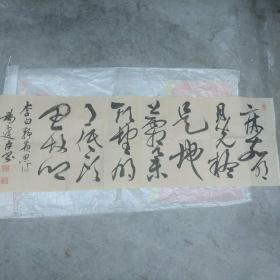 床前明
月光疑
是地
上霜举
头望明
月低头
思故乡
李白静夜思